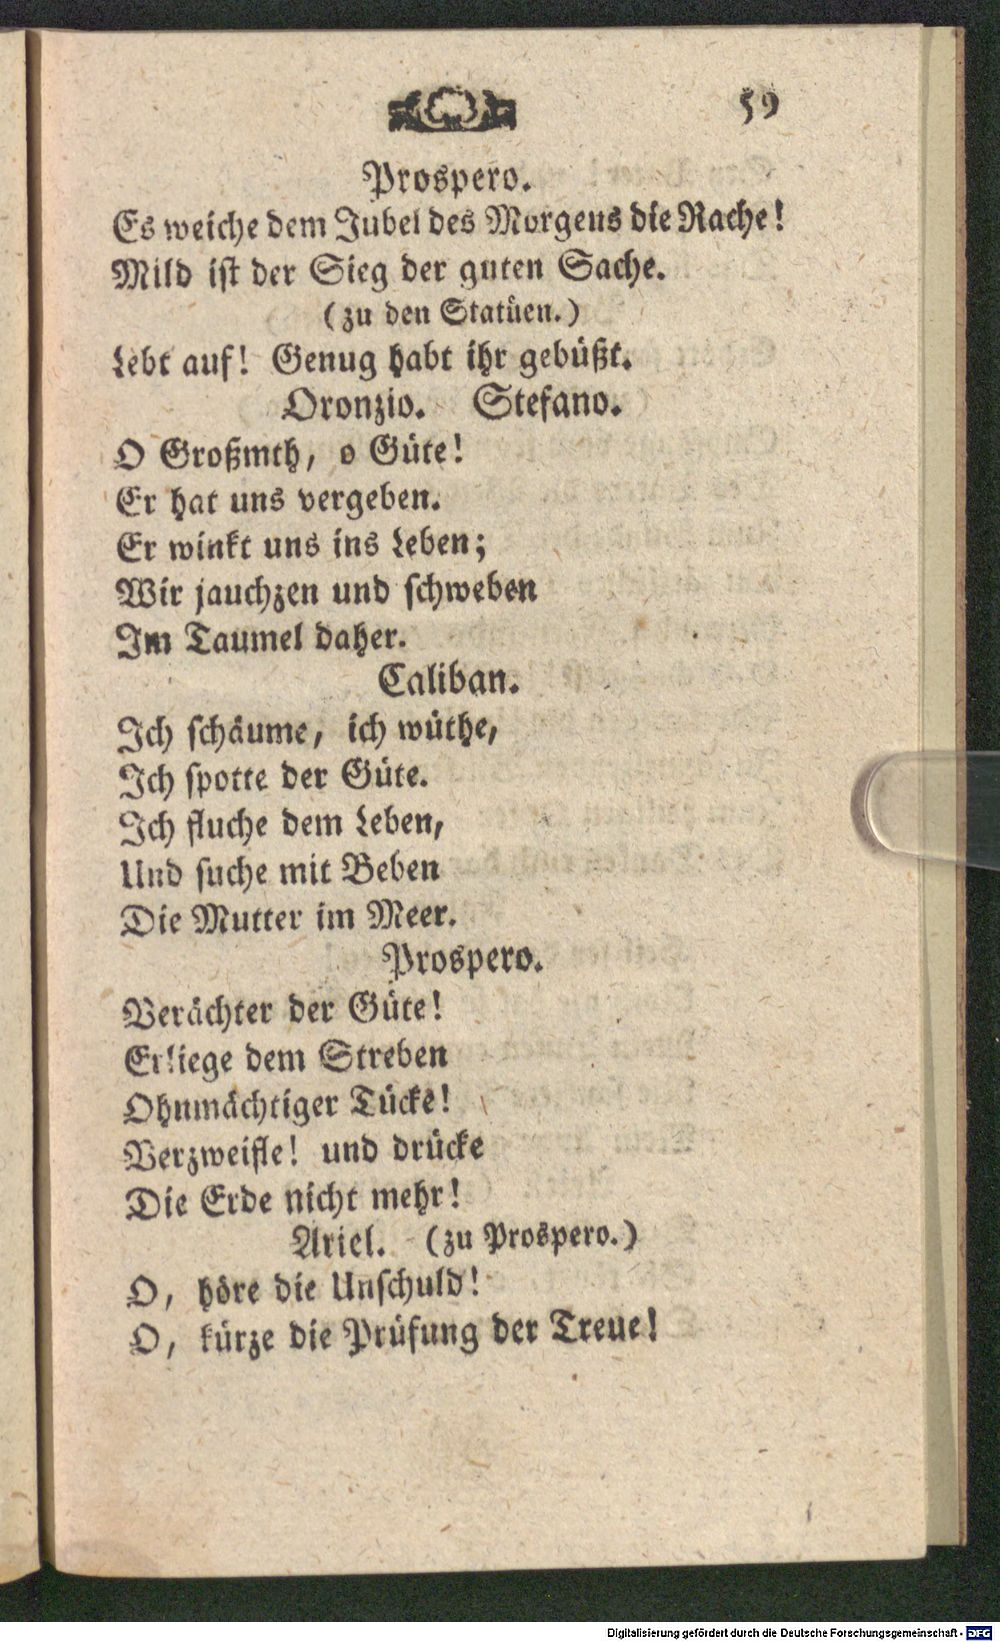 59
Prospero.
Es weiche dem Jubel des Morgens die Rache!
Mild ist der Sieg der guten Sache.
(zu den Statüen.)
Lebt auf! Genug habt ihr gebüßt.
Oronzio. Stefano.
O Großmth, o Güte!
Er hat uns vergeben.
Er winkt uns ins Leben;
Wir jauchzen und schweben
Im Taumel daher.
Caliban.
Ich schäume, ich wüthe,
Ich spotte der Güte.
Ich fluche dem Leben,
Und suche mit Beben
Die Mutter im Meer.
Prospero.
Verächter der Güte!
Erliege dem Streben
Ohnmächtiger Tücke!
Verzweifle! und drücke
Die Erde nicht mehr!
Ariel. (zu Prospero.)
O, höre die Unschuld!
O, kürze die Prüfung der Treue!
Digitalisierung gefördert durch die Deutsche Forschungsgemeinschaft - DFG